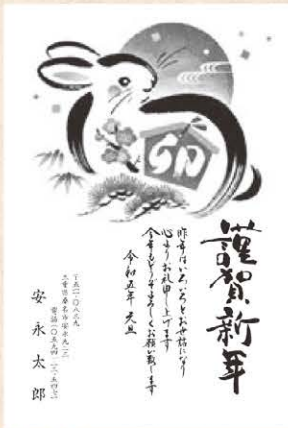 卯
謹賀新年
昨年はいろいろとお世話になり
心よりお礼申し上げます
今年もどうぞよろしくお願い致します
令和五年 元旦
〒五一一-〇八三九
三重県桑名市安永九一三
安永太郎